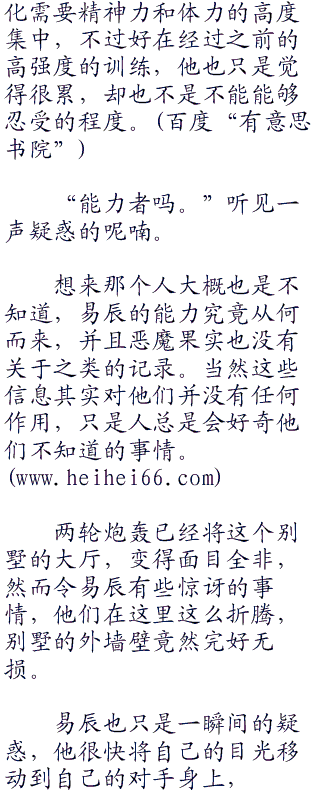 化需要精神力和体力的高度
集中，不过好在经过之前的
高强度的训练，他也只是觉
得很累，却也不是不能能够
忍受的程度。(百度“有意思
书院”)
“能力者吗。”听见一
声疑惑的呢喃。
想来那个人大概也是不
知道，易辰的能力究竟从何
而来，并且恶魔果实也没有
关于之类的记录。当然这些
信息其实对他们并没有任何
作用，只是人总是会好奇他
们不知道的事情。
(www.heihei66.com)
两轮炮轰已经将这个别
墅的大厅，变得面目全非，
然而令易辰有些惊讶的事
情，他们在这里这么折腾，
别墅的外墙壁竟然完好无
损。
易辰也只是一瞬间的疑
惑，他很快将自己的目光移
动到自己的对手身上，